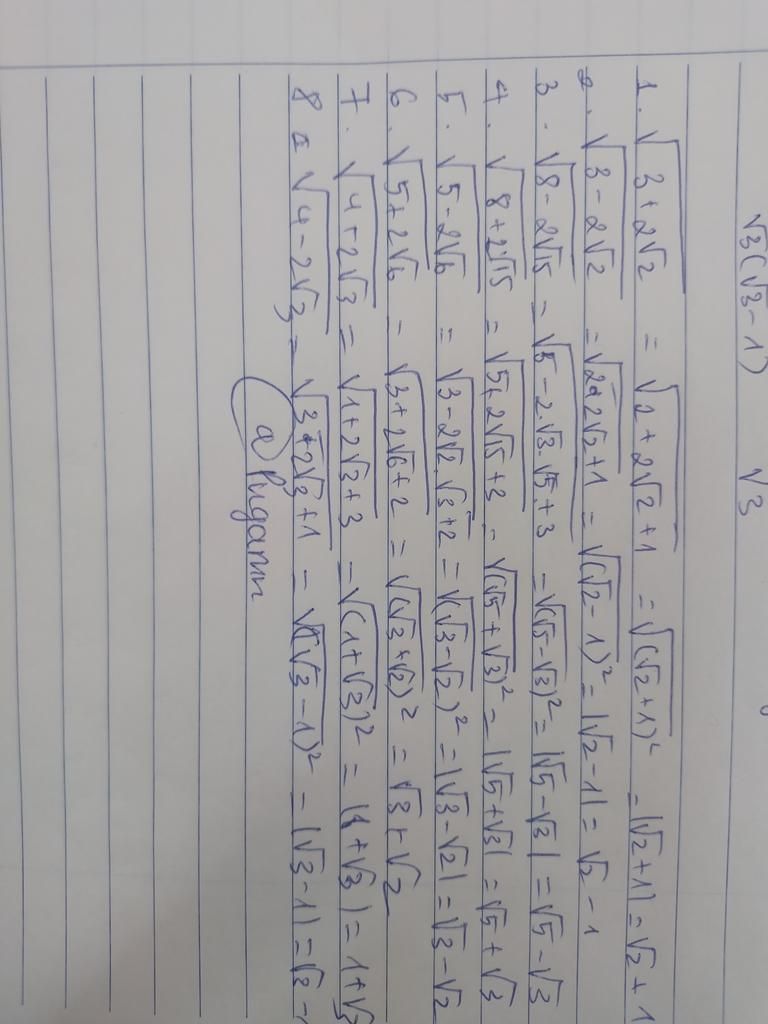 √3(√3-1) √3
1. √(3+2√2) = √(2+2√2+1) = √(√2+1)² = |√2+1| = √2+1
2. √(3-2√2) = √(2-2√2+1) = √(√2-1)² = |√2-1| = √2-1
3. √(8-2√15) = √(5-2.√3.√5+3) = √(√5-√3)² = |√5-√3| = √5-√3
4. √(8+2√15) = √(5+2√15+3) = √(√5+√3)² = |√5+√3| = √5+√3
5. √(5-2√6) = √(3-2√2.√3+2) = √(√3-√2)² = |√3-√2| = √3-√2
6. √(5+2√6) = √(3+2√6+2) = √(√3+√2)² = √3+√2
7. √(4+2√3) = √(1+2√3+3) = √(1+√3)² = |1+√3| = 1+√3
8. √(4-2√3) = √(3-2√3+1) = √(√3-1)² = |√3-1| = √3-1